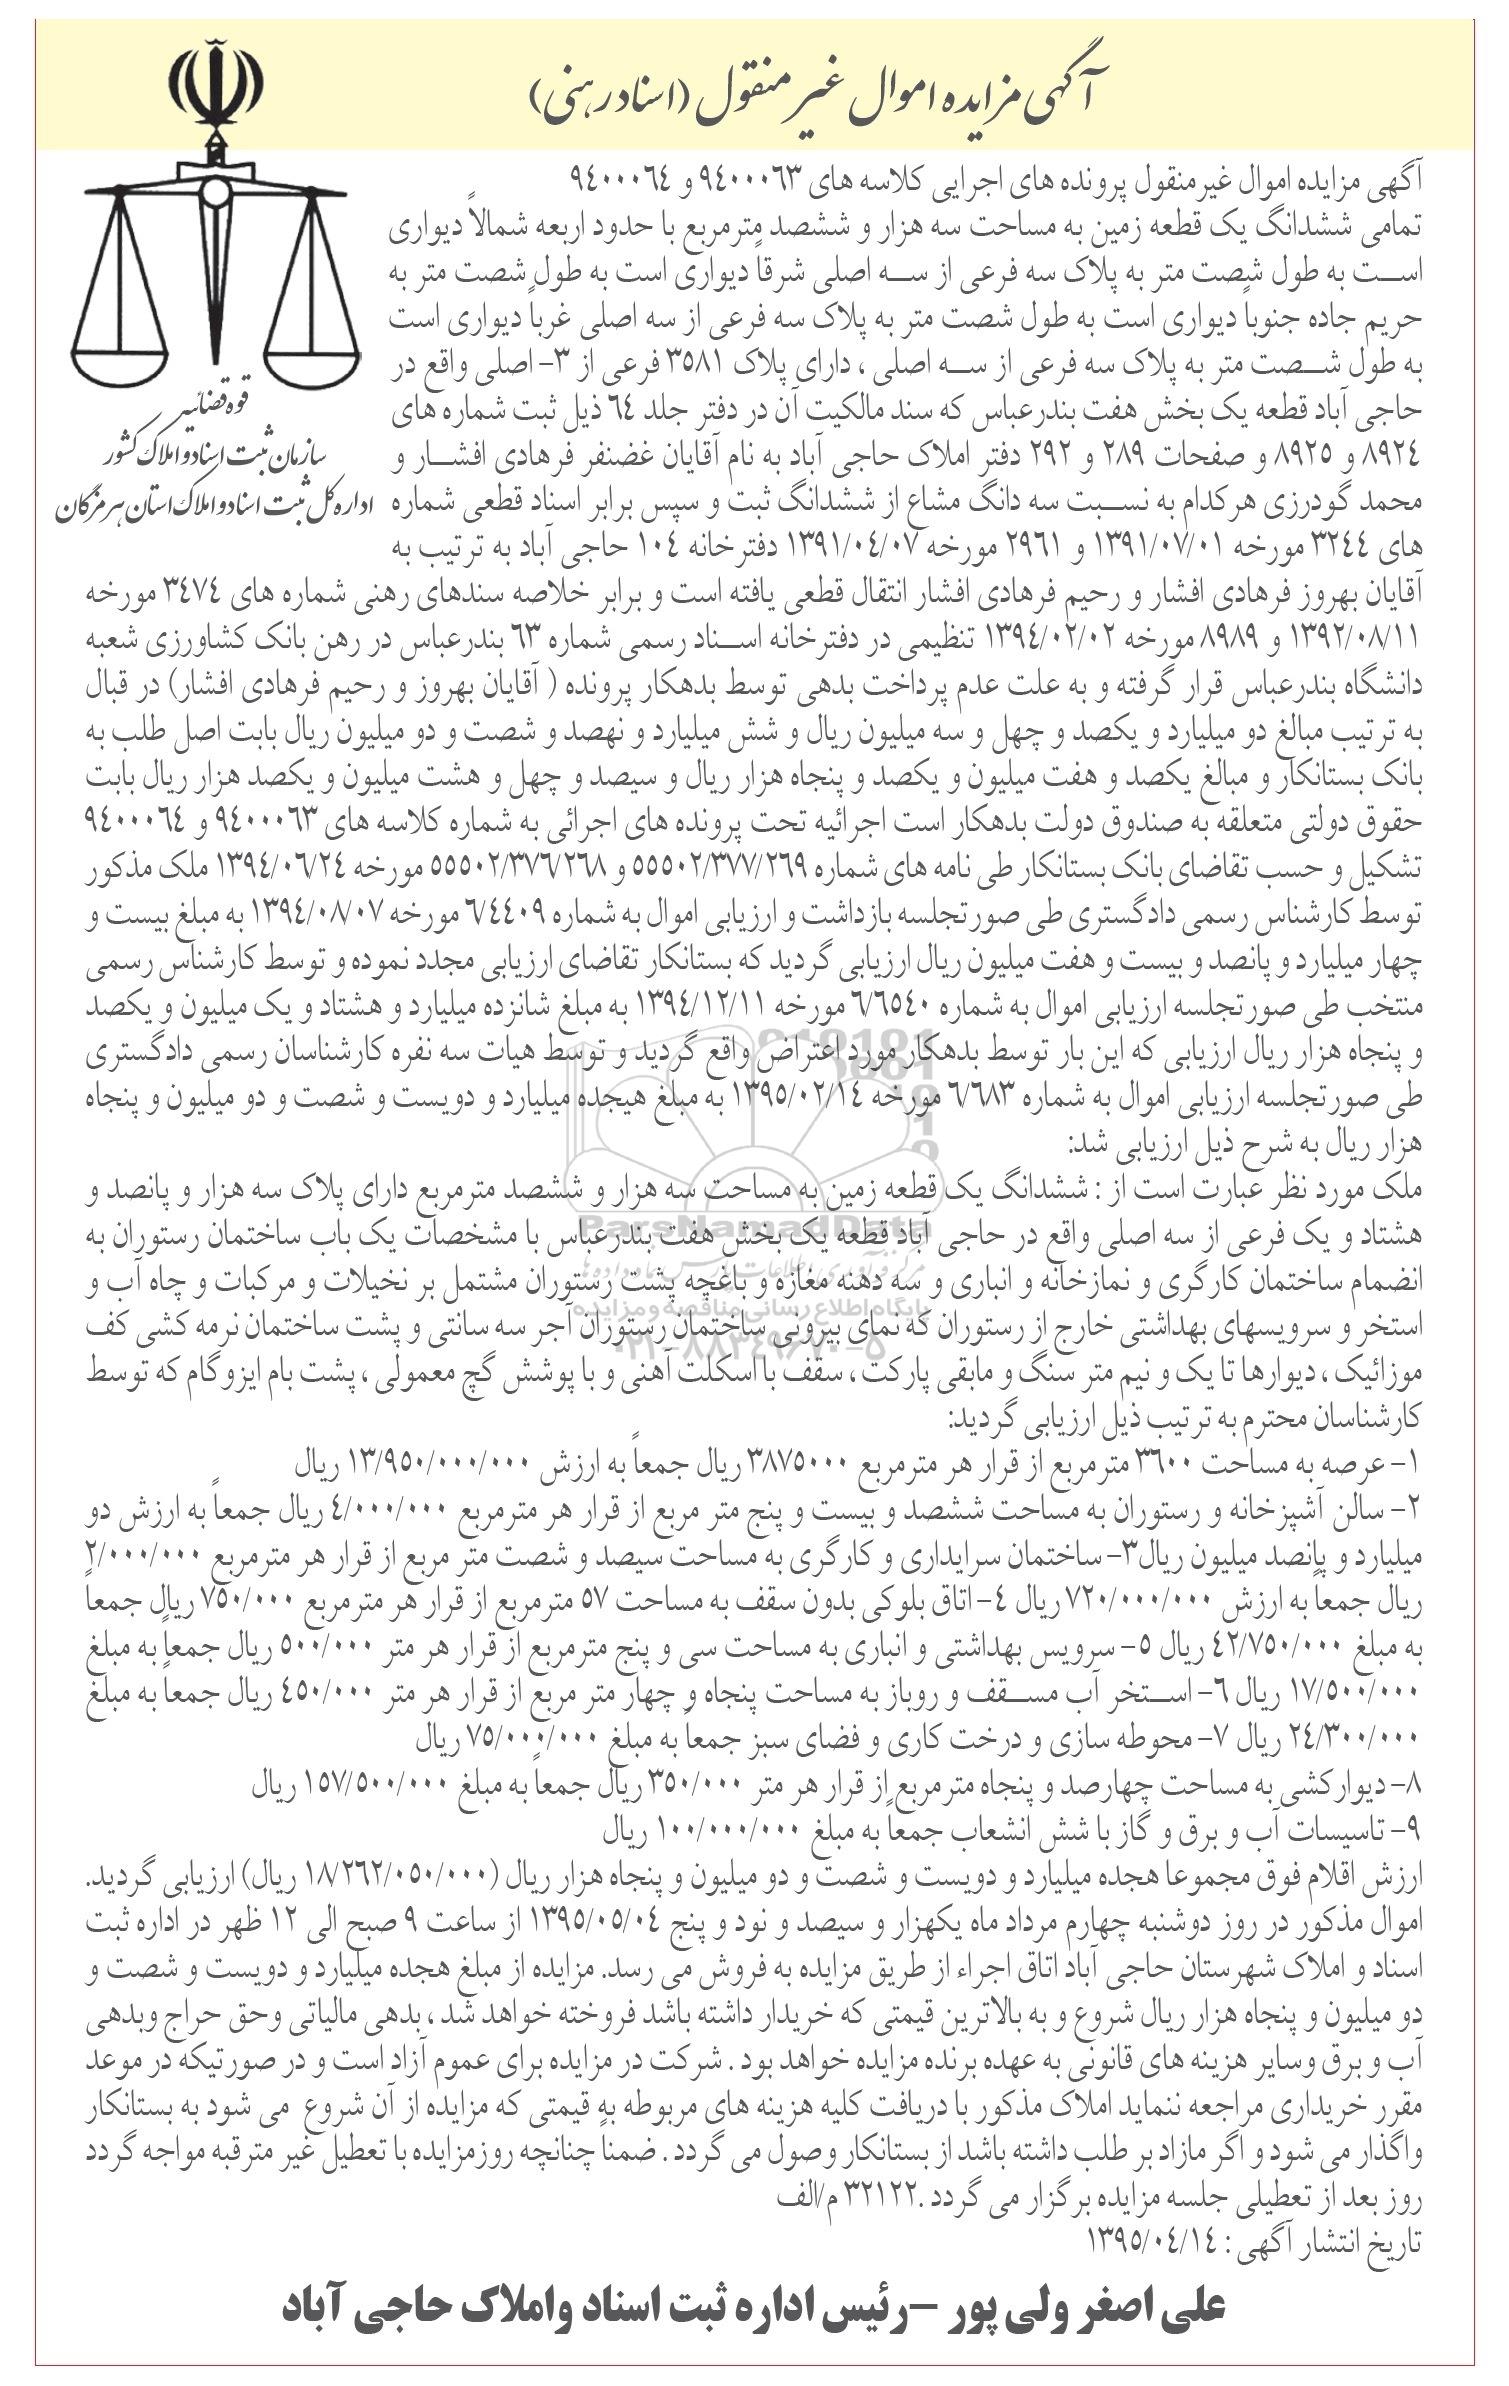 آگهی مزایده اموال غیر منقول (اسناد رهنی)
قوه قضائیه
سازمان ثبت اسناد و املاک کشور
اداره کل ثبت اسناد و املاک استان هرمزگان
آگهی مزایده اموال غیرمنقول پرونده های اجرایی کلاسه های ۹٤۰۰۰٦۳ و ۹٤۰۰۰٦٤
تمامی ششدانگ یک قطعه زمین به مساحت سه هزار و ششصد مترمربع با حدود اربعه شمالاً دیواری
است به طول شصت متر به پلاک سه فرعی از سه اصلی شرقاً دیواری است به طول شصت متر به
حریم جاده جنوباً دیواری است به طول شصت متر به پلاک سه فرعی از سه اصلی غرباً دیواری است
به طول شصت متر به پلاک سه فرعی از سه اصلی ، دارای پلاک ۳۵۸۱ فرعی از ۳- اصلی واقع در
حاجی آباد قطعه یک بخش هفت بندرعباس که سند مالکیت آن در دفتر جلد ٦٤ ذیل ثبت شماره های
۸۹۲٤ و ۸۹۲۵ و صفحات ۲۸۹ و ۲۹۲ دفتر املاک حاجی آباد به نام آقایان غضنفر فرهادی افشار و
محمد گودرزی هرکدام به نسبت سه دانگ مشاع از ششدانگ ثبت و سپس برابر اسناد قطعی شماره
های ۳۲٤٤ مورخه ۱۳۹۱/۰۷/۰۱ و ۲۹٦۱ مورخه ۱۳۹۱/۰٤/۰۷ دفترخانه ۱۰٤ حاجی آباد به ترتیب به
آقایان بهروز فرهادی افشار و رحیم فرهادی افشار انتقال قطعی یافته است و برابر خلاصه سندهای رهنی شماره های ۳٤۷٤ مورخه
۱۳۹۲/۰۸/۱۱ و ۸۹۸۹ مورخه ۱۳۹٤/۰۲/۰۲ تنظیمی در دفترخانه اسناد رسمی شماره ٦۳ بندرعباس در رهن بانک کشاورزی شعبه
دانشگاه بندرعباس قرار گرفته و به علت عدم پرداخت بدهی توسط بدهکار پرونده ( آقایان بهروز و رحیم فرهادی افشار) در قبال
به ترتیب مبالغ دو میلیارد و یکصد و چهل و سه میلیون ریال و شش میلیارد و نهصد و شصت و دو میلیون ریال بابت اصل طلب به
بانک بستانکار و مبالغ یکصد و هفت میلیون و یکصد و پنجاه هزار ریال و سیصد و چهل و هشت میلیون و یکصد هزار ریال بابت
حقوق دولتی متعلقه به صندوق دولت بدهکار است اجرائیه تحت پرونده های اجرائی به شماره کلاسه های ۹٤۰۰۰٦۳ و ۹٤۰۰۰٦٤
تشکیل و حسب تقاضای بانک بستانکار طی نامه های شماره ۵۵۵۰۲/۳۷۷/۲٦۹ و ۵۵۵۰۲/۳۷٦/۲٦۸ مورخه ۱۳۹٤/۰٦/۲٤ ملک مذکور
توسط کارشناس رسمی دادگستری طی صورتجلسه بازداشت و ارزیابی اموال به شماره ٦/٤٤۰۹ مورخه ۱۳۹٤/۰۸/۰۷ به مبلغ بیست و
چهار میلیارد و پانصد و بیست و هفت میلیون ریال ارزیابی گردید که بستانکار تقاضای ارزیابی مجدد نموده و توسط کارشناس رسمی
منتخب طی صورتجلسه ارزیابی اموال به شماره ٦/٦۵٤۰ مورخه ۱۳۹٤/۱۲/۱۱ به مبلغ شانزده میلیارد و هشتاد و یک میلیون و یکصد
و پنجاه هزار ریال ارزیابی که این بار توسط بدهکار مورد اعتراض واقع گردید و توسط هیات سه نفره کارشناسان رسمی دادگستری
طی صورتجلسه ارزیابی اموال به شماره ٦/٦۸۳ مورخه ۱۳۹۵/۰۲/۱٤ به مبلغ هیجده میلیارد و دویست و شصت و دو میلیون و پنجاه
هزار ریال به شرح ذیل ارزیابی شد:
ملک مورد نظر عبارت است از : ششدانگ یک قطعه زمین به مساحت سه هزار و ششصد مترمربع دارای پلاک سه هزار و پانصد و
هشتاد و یک فرعی از سه اصلی واقع در حاجی آباد قطعه یک بخش هفت بندرعباس با مشخصات یک باب ساختمان رستوران به
انضمام ساختمان کارگری و نمازخانه و انباری و سه دهنه مغازه و باغچه پشت رستوران مشتمل بر نخیلات و مرکبات و چاه آب و
استخر و سرویسهای بهداشتی خارج از رستوران که نمای بیرونی ساختمان رستوران آجر سه سانتی و پشت ساختمان نرمه کشی کف
موزائیک ، دیوارها تا یک و نیم متر سنگ و مابقی پارکت ، سقف با اسکلت آهنی و با پوشش گچ معمولی ، پشت بام ایزوگام که توسط
کارشناسان محترم به ترتیب ذیل ارزیابی گردید:
۱- عرصه به مساحت ۳٦۰۰ مترمربع از قرار هر مترمربع ۳۸۷۵۰۰۰ ریال جمعاً به ارزش ۱۳/۹۵۰/۰۰۰/۰۰۰ ریال
۲- سالن آشپزخانه و رستوران به مساحت ششصد و بیست و پنج متر مربع از قرار هر مترمربع ٤/۰۰۰/۰۰۰ ریال جمعاً به ارزش دو
میلیارد و پانصد میلیون ریال۳- ساختمان سرایداری و کارگری به مساحت سیصد و شصت متر مربع از قرار هر مترمربع ۲/۰۰۰/۰۰۰
ریال جمعاً به ارزش ۷۲۰/۰۰۰/۰۰۰ ریال ٤- اتاق بلوکی بدون سقف به مساحت ۵۷ مترمربع از قرار هر مترمربع ۷۵۰/۰۰۰ ریال جمعاً
به مبلغ ٤۲/۷۵۰/۰۰۰ ریال ۵- سرویس بهداشتی و انباری به مساحت سی و پنج مترمربع از قرار هر متر ۵۰۰/۰۰۰ ریال جمعاً به مبلغ
۱۷/۵۰۰/۰۰۰ ریال ٦- استخر آب مسقف و روباز به مساحت پنجاه و چهار متر مربع از قرار هر متر ٤۵۰/۰۰۰ ریال جمعاً به مبلغ
۲٤/۳۰۰/۰۰۰ ریال ۷- محوطه سازی و درخت کاری و فضای سبز جمعاً به مبلغ ۷۵/۰۰۰/۰۰۰ ریال
۸- دیوارکشی به مساحت چهارصد و پنجاه مترمربع از قرار هر متر ۳۵۰/۰۰۰ ریال جمعاً به مبلغ ۱۵۷/۵۰۰/۰۰۰ ریال
۹- تاسیسات آب و برق و گاز با شش انشعاب جمعاً به مبلغ ۱۰۰/۰۰۰/۰۰۰ ریال
ارزش اقلام فوق مجموعا هجده میلیارد و دویست و شصت و دو میلیون و پنجاه هزار ریال (۱۸/۲٦۲/۰۵۰/۰۰۰ ریال) ارزیابی گردید.
اموال مذکور در روز دوشنبه چهارم مرداد ماه یکهزار و سیصد و نود و پنج ۱۳۹۵/۰۵/۰٤ از ساعت ۹ صبح الی ۱۲ ظهر در اداره ثبت
اسناد و املاک شهرستان حاجی آباد اتاق اجراء از طریق مزایده به فروش می رسد. مزایده از مبلغ هجده میلیارد و دویست و شصت و
دو میلیون و پنجاه هزار ریال شروع و به بالاترین قیمتی که خریدار داشته باشد فروخته خواهد شد ، بدهی مالیاتی وحق حراج وبدهی
آب و برق وسایر هزینه های قانونی به عهده برنده مزایده خواهد بود . شرکت در مزایده برای عموم آزاد است و در صورتیکه در موعد
مقرر خریداری مراجعه ننماید املاک مذکور با دریافت کلیه هزینه های مربوطه به قیمتی که مزایده از آن شروع می شود به بستانکار
واگذار می شود و اگر مازاد بر طلب داشته باشد از بستانکار وصول می گردد . ضمناً چنانچه روزمزایده با تعطیل غیر مترقبه مواجه گردد
روز بعد از تعطیلی جلسه مزایده برگزار می گردد .۳۲۱۲۲ م/الف
تاریخ انتشار آگهی : ۱۳۹۵/۰٤/۱٤
علی اصغر ولی پور -رئیس اداره ثبت اسناد واملاک حاجی آباد
ParsNamadData
پایگاه اطلاع رسانی مناقصه و مزایده